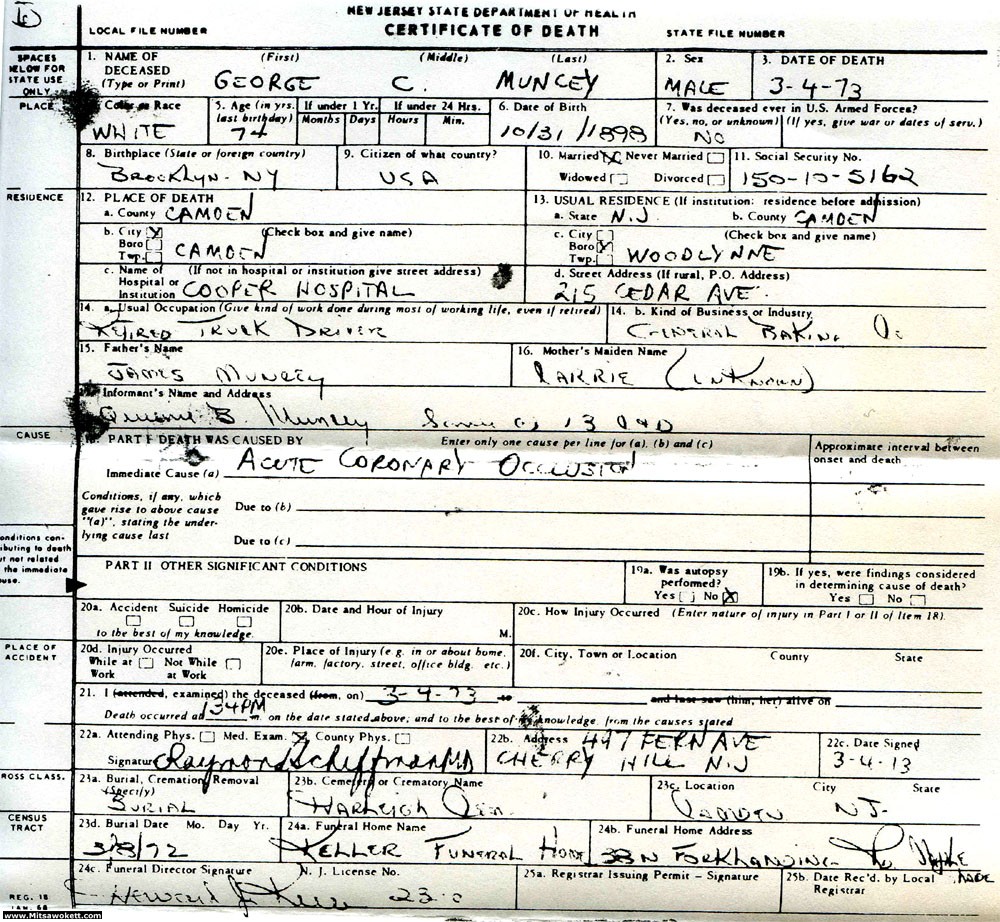 NEW JERSEY STATE DEPARTMENT OF HEALTH
LOCAL FILE NUMBER CERTIFICATE OF DEATH STATE FILE NUMBER
SPACES BELOW FOR STATE USE ONLY
1. NAME OF DECEASED (Type or Print) (First) (Middle) (Last) 2. Sex 3. DATE OF DEATH
GEORGE C. MUNCEY MALE 3-4-73
PLACE
Color or Race 5. Age (in yrs. last birthday) If under 1 Yr. Months Days If under 24 Hrs. Hours Min. 6. Date of Birth 7. Was deceased ever in U.S. Armed Forces? (Yes, no, or unknown) (If yes, give war or dates of serv.)
WHITE 74 10/31/1898 NO
8. Birthplace (State or foreign country) 9. Citizen of what country? 10. Married Never Married 11. Social Security No.
BROOKLYN-NY USA Widowed Divorced 150-10-5162
RESIDENCE
12. PLACE OF DEATH 13. USUAL RESIDENCE (If institution: residence before admission)
a. County CAMDEN a. State N.J b. County CAMDEN
b. City (Check box and give name) c. City (Check box and give name)
Boro Boro
Twp. CAMDEN Twp. WOODLYNNE
c. Name of Hospital or Institution (If not in hospital or institution give street address) d. Street Address (If rural, P.O. Address)
COOPER HOSPITAL 215 CEDAR AVE.
14. a. Usual Occupation (Give kind of work done during most of working life, even if retired) 14. b. Kind of Business or Industry
RETIRED TRUCK DRIVER GENERAL BAKING
15. Father's Name 16. Mother's Maiden Name
JAMES MUNCEY (UNKNOWN)
Informant's Name and Address
B. Muncey Same 13
CAUSE
PART I DEATH WAS CAUSED BY Enter only one cause per line for (a), (b) and (c) Approximate interval between onset and death
Immediate Cause (a) ACUTE CORONARY OCCLUSION
Conditions, if any, which gave rise to above cause "(a)", stating the underlying cause last
Due to (b)
Due to (c)
onditions con-
ibuting to death
ut not related
the immediate
use.
PART II OTHER SIGNIFICANT CONDITIONS 19a. Was autopsy performed? Yes No 19b. If yes, were findings considered in determining cause of death? Yes No
20a. Accident Suicide Homicide 20b. Date and Hour of Injury 20c. How Injury Occurred (Enter nature of injury in Part I or II of Item 18).
to the best of my knowledge. M.
PLACE OF ACCIDENT
20d. Injury Occurred 20e. Place of Injury (e.g. in or about home, farm, factory, street, office bldg. etc.) 20f. City, Town or Location County State
While at Work Not While at Work
21. I (attended, examined) the deceased (from, on) 3-4-73 to and last saw (him, her) alive on
Death occurred at 1:34PM m. on the date stated above; and to the best of my knowledge, from the causes stated
22a. Attending Phys. Med. Exam. County Phys. 22b. Address 447 FERN AVE 22c. Date Signed
Signature Raymond Schiffman MD CHERRY HILL N.J 3-4-13
ROSS CLASS.
23a. Burial, Cremation, Removal (Specify) 23b. Cemetery or Crematory Name 23c. Location City State
BURIAL HARLEIGH Cem. CAMDEN NJ-
CENSUS TRACT
23d. Burial Date Mo. Day Yr. 24a. Funeral Home Name 24b. Funeral Home Address
3/8/72 KELLER FUNERAL HOME 38 N FORKLANDING
24c. Funeral Director Signature N. J. License No. 25a. Registrar Issuing Permit - Signature 25b. Date Rec'd. by Local Registrar
REG. 18
www.Mitsawokett.com